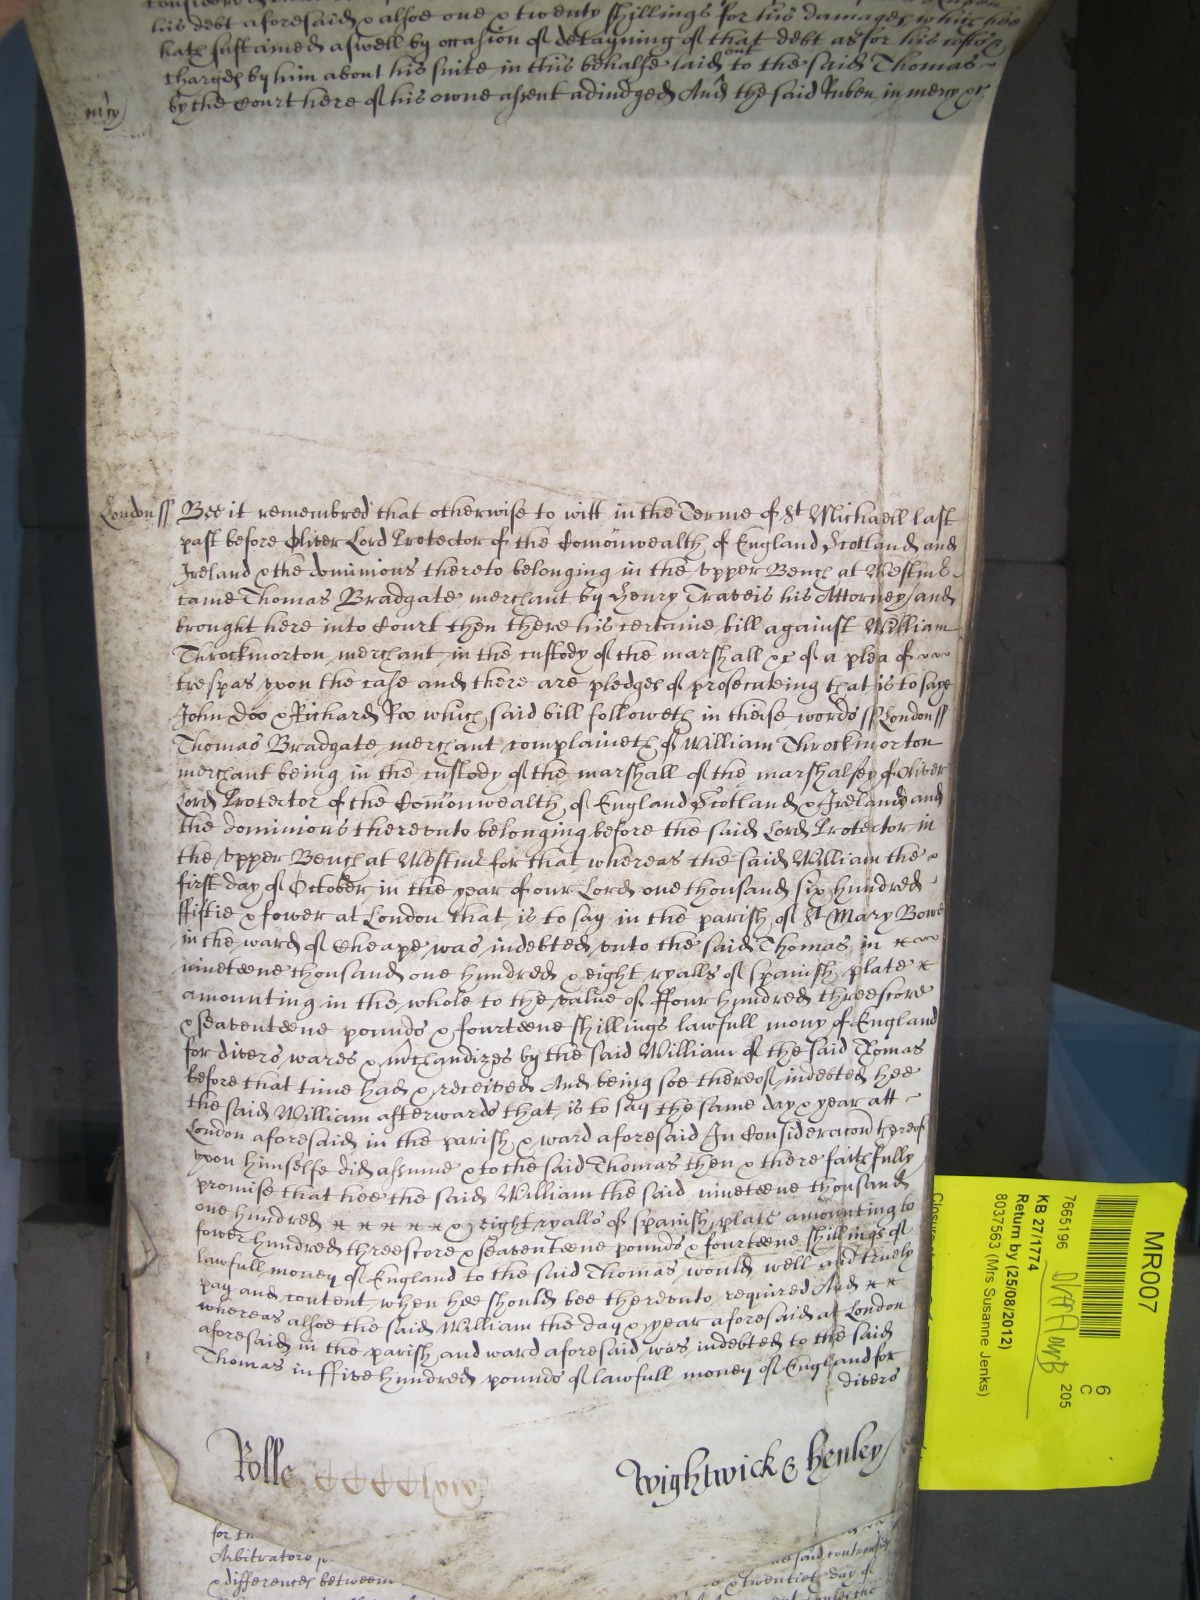 his debt aforesaid & alsoe one & twenty shillings for his damages which hee
hath susteined aswell by occasion of detayning of that debt as for his costs &
charges by him about his suite in this behalfe laid out to the said Thomas
by the Court here of his owne assent adiudged And the said Ruben in mercy &c.
m'cy
London ss Bee it remembred that otherwise to witt in the Terme of St Michaell last
past before Oliver Lord Protector of the Comonwealth of England Scotland and
Ireland & the dominions thereto belonging in the vpper Bench at Westmr
came Thomas Bradgate merchant by Henry Traveis his Attorney and
brought here into Court then there his certaine bill against William
Throckmorton merchant in the custody of the marshall &c of a plea of
trespas vpon the case and there are pledges of prosecuteing that is to saye
John Doo & Richard Roo which said bill followeth in theise words ss London ss
Thomas Bradgate merchant complaineth of William Throckmorton
merchant being in the custody of the marshall of the marshalsey of Oliver
Lord Protector of the Comonwealth of England Scotland & Ireland and
the dominions therevnto belonging before the said Lord Protector in
the vpper Bench at Westmr for that whereas the said William the
first day of October in the year of our Lord one thousand six hundred
ffiftie & fower at London that is to say in the parish of St Mary Bowe
in the ward of Cheape was indebted vnto the said Thomas in
nineteene thousand one hundred & eight ryalls of spanish plate
amounting in the whole to the value of ffour hundred threescore
& seaventeene pounds & fourteene shillings lawfull mony of England
for divers wares & m'chandizes by the said William of the said Thomas
before that time had & received And being soe thereof indebted hee
the said William afterwards that is to say the same day & year att
London aforesaid in the parish & ward aforesaid In Consideracon thereof
vpon himselfe did assume & to the said Thomas then & there faithfully
promise that hee the said William the said nineteene thousand
one hundred & eight ryalls of spanish plate amounting to
fower hundred threescore & seaventeene pounds & fourteene shillings of
lawfull money of England to the said Thomas would well and truely
pay and content when hee should bee therevnto required And
whereas alsoe the said William the day & year aforesaid at London
aforesaid in the parish and ward aforesaid was indebted to the said
Thomas in ffive hundred pounds of lawfull money of England for
divers
Rolle
Wightwick & Henley
for th
Arbitrators
& differences betweene
said
& twentieth day of
MR007
6
C
7665196
205
KB 27/1774
Return by (25/08/2012)
8037563 (Mrs Susanne Jenks)